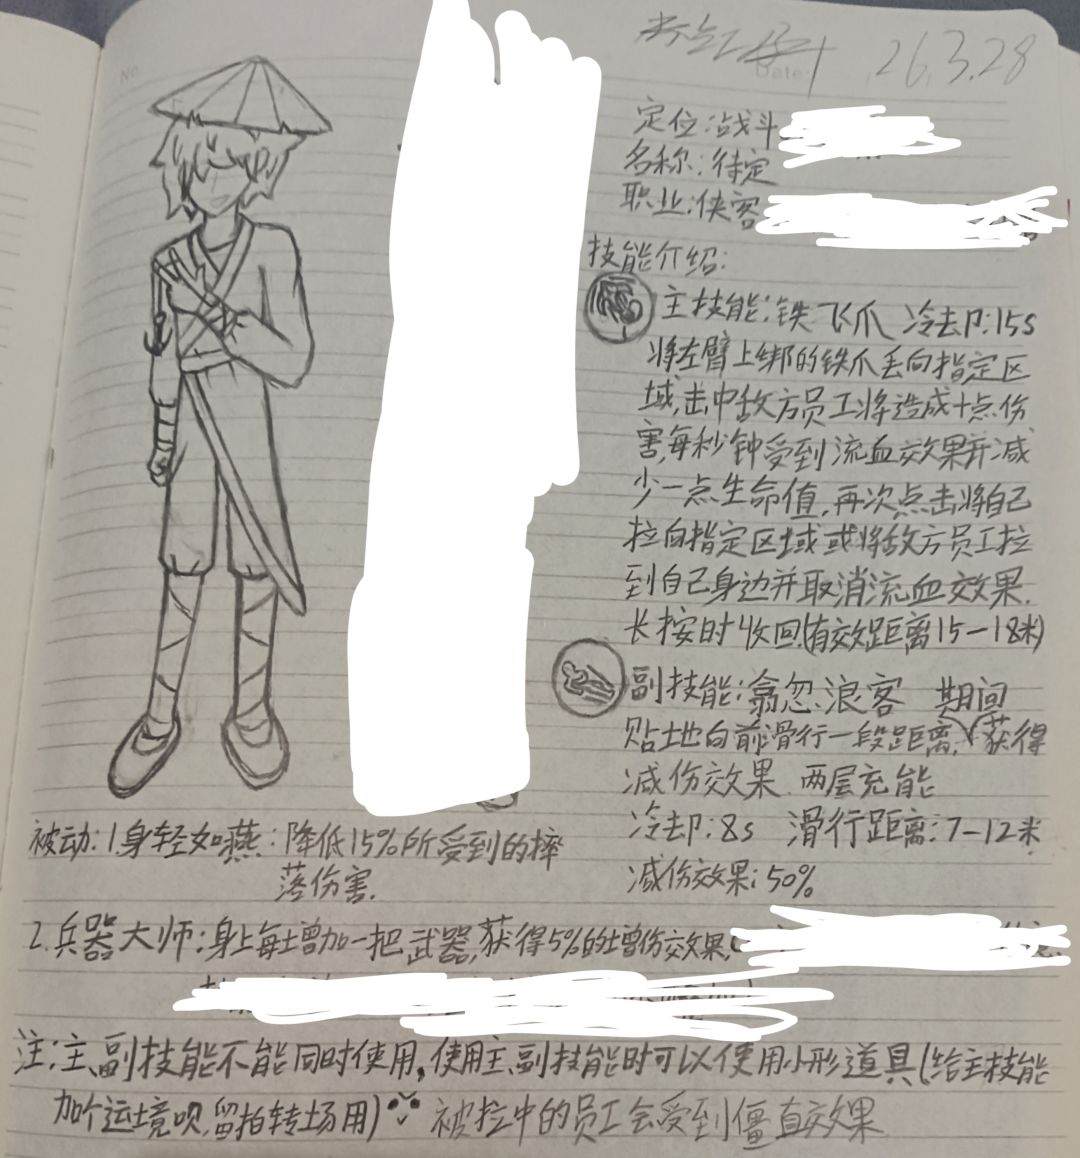 No.
Date:
26.3.28
定位:战斗
名称:待定
职业:侠客
技能介绍:
主技能:铁飞爪 冷却:15s
将左臂上绑的铁爪丢向指定区
域,击中敌方员工将造成十点伤
害,每秒钟受到流血效果并减
少一点生命值,再次点击将自己
拉向指定区域或将敌方员工拉
到自己身边并取消流血效果.
长按时收回.(有效距离15-18米)
副技能:翕忽浪客 期间
贴地向前滑行一段距离,获得
减伤效果.两层充能
冷却:8s 滑行距离:7-12米
减伤效果:50%
被动:1身轻如燕:降低15%所受到的摔
落伤害.
2.兵器大师:身上每增加一把武器,获得5%的增伤效果,
注:主、副技能不能同时使用,使用主、副技能时可以使用小形道具(给主技能
加个运境呗,留拍转场用) 被拉中的员工会受到僵直效果